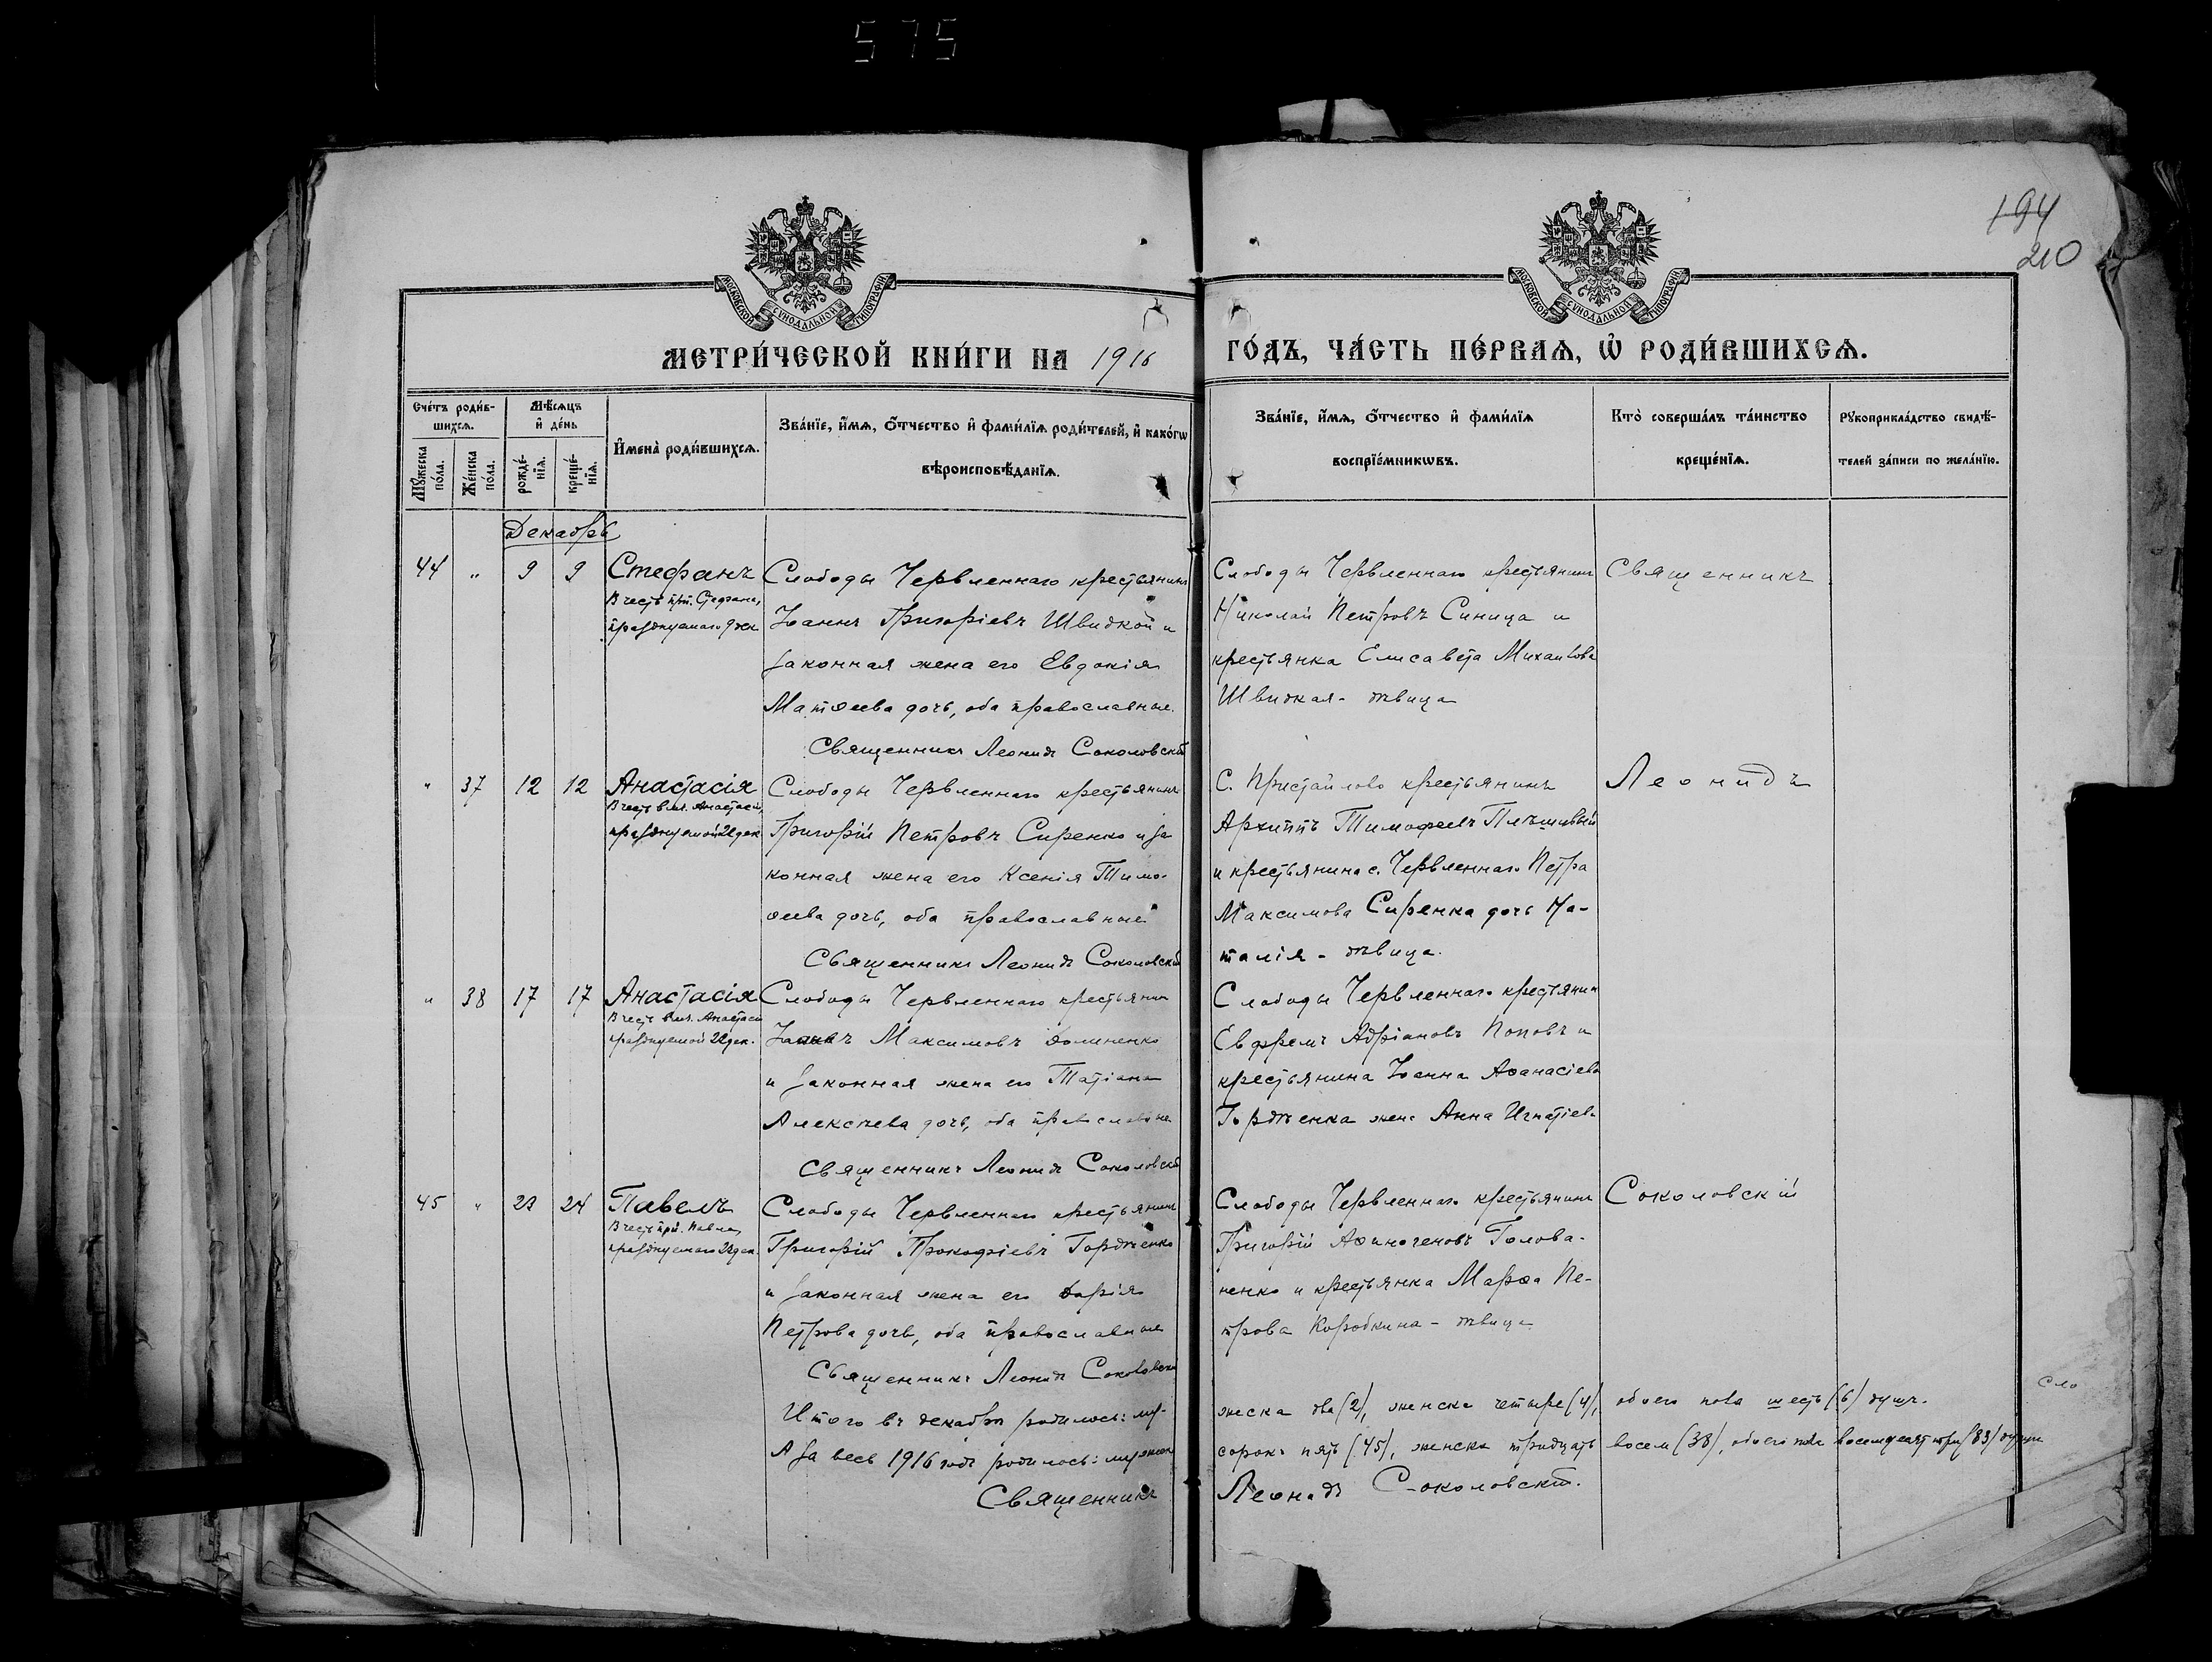 575
194
210
МОСКОВСКОЙ СѴНОДАЛЬНОЙ ТИПОГРАФІИ
МОСКОВСКОЙ СѴНОДАЛЬНОЙ ТИПОГРАФІИ
МЕТРИ́ЧЕСКОЙ КНИ́ГИ НА 1916 ГО́ДЪ, ЧА́СТЬ ПЕ́РВАѦ, Ѡ҆ РОДИ́ВШИХСѦ.
Сче́тъ роди́в-
шихсѧ.
Мꙋ́жеска по́ла.
Же́нска по́ла.
Мѣ́сѧцъ и҆ де́нь
рожде́-нїѧ.
креще́-нїѧ.
И҆мена̀ роди́вшихсѧ.
Зва́нїе, и҆́мѧ, ѻ҆́тчество и҆ фами́лїѧ роди́телей, и҆ како́гѡ
вѣроисповѣ́данїѧ.
Зва́нїе, и҆́мѧ, ѻ҆́тчество и҆ фами́лїѧ
воспрїе́мникѡвъ.
Кто̀ соверша́лъ та́инство
креще́нїѧ.
Рꙋкоприкла́дство свидѣ́-
телей за́писи по жела́нїю.
Декабрь
44 " 9 9 Стефанъ
В честь прп. Стефана,
празднуемаго 9 дек
Слободы Червленнаго крестьянинъ
Іоаннъ Григоріевъ Швидкой и
законная жена его Евдокія
Матѳеева дочь, оба православные.
Священникъ Леонидъ Соколовскій
Слободы Червленнаго крестьянинъ
Николай Петровъ Синица и
крестьянка Елисавета Михаилова
Швидкая - дѣвица
Священникъ
" 37 12 12 Анастасія
В честь влмч. Анастасіи,
празднуемой 22 дек
Слободы Червленнаго крестьянинъ
Григорій Петровъ Сиренко и за
конная жена его Ксенія Тимо-
ѳеева дочь, оба православные
Священникъ Леонидъ Соколовскій
С. Пристайлово крестьянинъ
Архиппъ Тимофеевъ Плѣшивый
и крестьянина с. Червленнаго Петра
Максимова Сиренка дочь На-
талія - дѣвица.
Леонидъ
" 38 17 17 Анастасія
В честь влмч. Анастасіи
празднуемой 22 дек.
Слободы Червленнаго крестьянин
Максимовъ Долиненко
и законная жена его Татіана
Алексѣева дочь, оба православные
Священникъ Леонидъ Соколовскій
Слободы Червленнаго крестьянин
Евфремъ Адріановъ Поповъ и
крестьянина Іоанна Аѳанасіева
Гордѣенка жена Анна Игнатіева
45 " 23 24 Павелъ
В честь прп. Павла,
празднуемаго 23 дек.
Слободы Червленнаго крестьянинъ
Григорій Прокофіевъ Гордѣенко
и законная жена его Дарія
Петрова дочь, оба православные
Священникъ Леонидъ Соколовскій
Слободы Червленнаго крестьянинъ
Григорій Аѳиногеновъ Голова-
ненко и крестьянка Марѳа Пе-
трова Коробкина - дѣвица
Соколовскій
Итого въ декабрѣ родилось: му-
жеска два (2), женска четыре (4), обоего пола шесть (6) душъ.
А за весь 1916 годъ родилось: мужеска
сорокъ пять (45), женска тридцать восемь (38), обоего пола восемьдесят три (83) души
Священникъ Леонидъ Соколовскій.